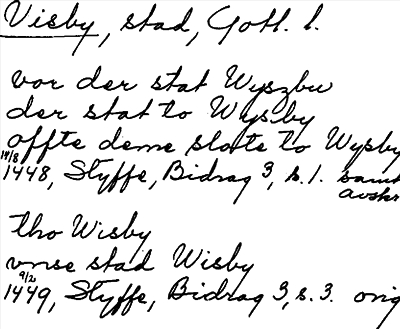 Visby, stad, Gotl. l.
vor der stat Wyszbu
der stat to Wysby
offte deme slote to Wysby
14/8
1448, Styffe, Bidrag 3, s. 1. samt
avskr
tho Wisby
vnse stad Wisby
9/2
1449, Styffe, Bidrag 3, s. 3. orig